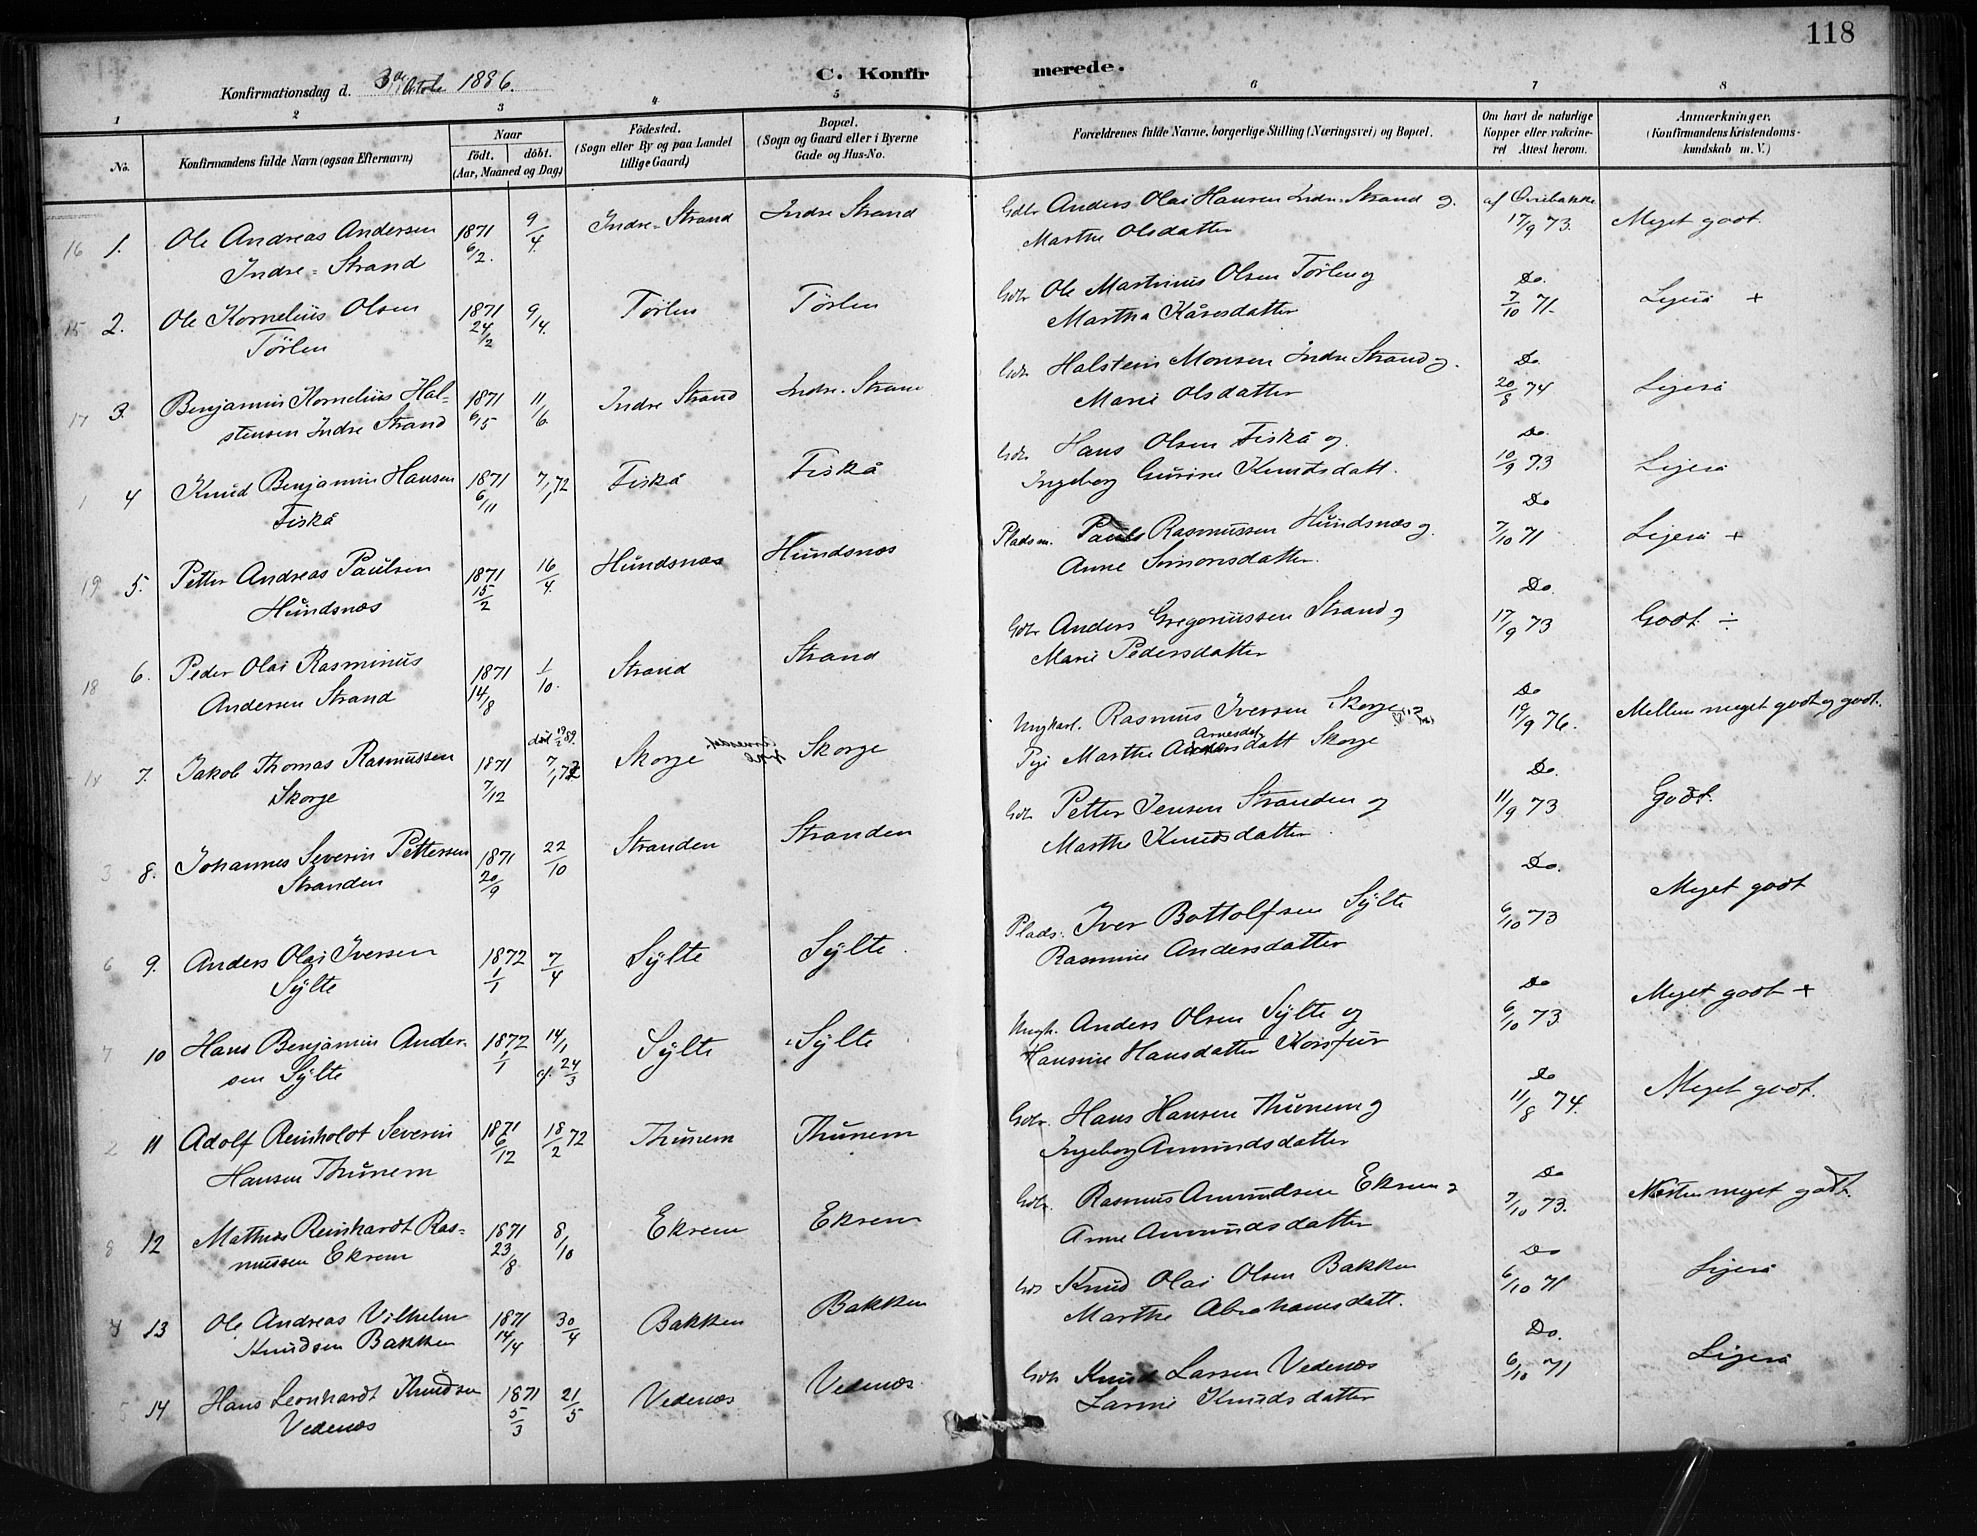 118
Konfirmationsdag d. 3die Oktobr 1886.
C. Konfirmerede.
1 2 3 4 5 6 7 8
No.
Konfirmandens fulde Navn (ogsaa Efternavn)
Naar
födt. döbt.
(Aar, Maaned og Dag)
Födested.
(Sogn eller By og paa Landet
tillige Gaard)
Bopæl.
(Sogn og Gaard eller i Byerne
Gade og Hus-No.
Forældrenes fulde Navne, borgerlige Stilling (Næringsvei) og Bopæl.
Om havt de naturlige
Kopper eller vakcine-
ret Attest herom.
Anmærkninger.
(Konfirmandens Kristendoms-
kundskab m. V.)
16 1. Ole Andreas Andersen 1871 9/4 Indre-Strand Indre Strand Gdbr Anders Olai Hansen Indre-Strand og af Øvrebakke
Indre-Strand 6/2. Marthe Olsdatter 17/9 73. Meget godt.
15 2. Ole Kornelius Olsen 1871 9/4. Tørlen Tørlen Gdbr Ole Martinius Olsen Tørlen og Do.
Tørlen 24/2 Martha Kåresdatter 7/10 71. Ligeså +
17 3. Benjamin Kornelius Hal- 1871 11/6. Indre Strand Indre-Strand Gdbr Halstein Monsen Indre Strand og Do
stensen Indre Strand 6/5 Marie Olsdatter 20/8 74 Ligeså
1 4 Knud Benjamin Hansen 1871 7/1 72 Fiskå Fiskå Gdbr Hans Olsen Fiskå og Do.
Fiskå 6/11 Ingeborg Gurine Knudsdatt. 10/9 73 Ligeså
19 5. Petter Andreas Paulsen 1871 16/4. Hundsnæs Hundsnæs Pladsm. Paul Rasmussen Hundsnæs og Do
Hundsnæs 15/2 Anne Simonsdatter. 7/10 71 Ligeså +
18 6. Peder Olai Rasminus 1871 1/10. Strand Strand Gdbr Anders Gregoriussen Strand og Do.
Andersen Strand 14/8 Marie Pedersdatter 17/9 73 Godt ÷
7. Jakob Thomas Rasmussen 1871 7/1 72 Skorge Skorge Ungkarl. Rasmus Iversen Skorge Do
Skorge 7/12 Pige Marthe Arnesdat Andersdatt Skorge 19/9 76. Mellem meget godt og godt.
3 8. Johannes Severin Pettersen 1871 22/10 Stranden Stranden Gdbr Petter Jensen Stranden og Do.
Stranden 20/9 Marthe Knudsdatter 11/9 73 Godt.
6 9. Anders Olai Iversen 1872 7/4 Sylte Sylte Plads. Iver Bottolfsen Sylte Do.
Sylte 1/1 Rasmine Andersdatter 6/10 73 Meget godt
7 10 Hans Benjamin Ander- 1872 14/1 Sylte Sylte Ungk. Anders Olsen Sylte og Do
sen Sylte 1/1 cf. 24/3 Hansine Hansdatter Korsfur 6/10 73 Meget godt +
2 11 Adolf Reinholdt Severin 1871 18/2 72 Thunem Thunem Gdbr. Hans Hansen Thunem og Do
Hansen Thunem 6/12 Ingeborg Amundsdatter 11/8 74. Meget godt.
8 12 Mathias Reinhardt Ras- 1871 8/10 Ekrem Ekrem Gdbr. Rasmus Amundsen Ekrem og Do
mussen Ekrem 23/8 Anne Amundsdatter 7/10 73. Næsten meget godt.
4 13 Ole Andreas Vilhelm 1871 30/4 Bakken Bakken Gdb Knud Olai Olsen Bakken Do
Knudsen Bakken 14/4 Marthe Abrahamsdatt. 6/10 71 Ligeså
5 14 Hans Leonhardt Knudsen 1871 21/5 Vedenæs Vedenæs Gdbr Knud Larsen Vedenæs Do.
Vedenæs 5/3 Larine Knudsdatter 6/10 71 Ligeså